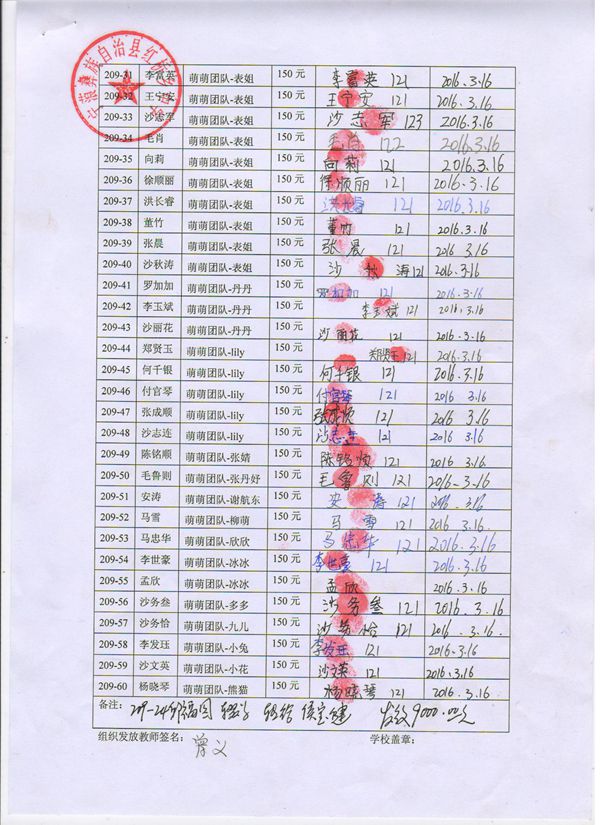 宁蒗彝族自治县红
209-31 李富英 萌萌团队-表姐 150 元 李富英 121 2016.3.16
209-32 王宁安 萌萌团队-表姐 150 元 王宁安 121 2016.3.16
209-33 沙志军 萌萌团队-表姐 150 元 沙志军 123 2016.3.16
209-34 毛肖 萌萌团队-表姐 150 元 毛肖 122 2016.3.16
209-35 向莉 萌萌团队-表姐 150 元 向莉 121 2016.3.16
209-36 徐顺丽 萌萌团队-表姐 150 元 徐顺丽 121 2016.3.16
209-37 洪长睿 萌萌团队-表姐 150 元 洪长睿 121 2016.3.16
209-38 董竹 萌萌团队-表姐 150 元 董竹 121 2016.3.16
209-39 张晨 萌萌团队-表姐 150 元 张晨 121 2016 3.16
209-40 沙秋涛 萌萌团队-表姐 150 元 沙秋海 121 2016.3.16
209-41 罗加加 萌萌团队-丹丹 150 元 罗加加 121 2016.3.16
209-42 李玉斌 萌萌团队-丹丹 150 元 李玉斌 121 2016.3.16
209-43 沙丽花 萌萌团队-丹丹 150 元 沙丽花 121 2016 3.16
209-44 郑贤玉 萌萌团队-lily 150 元 郑贤玉 121 2016.3.16
209-45 何千银 萌萌团队-lily 150 元 何千银 121 2016.3.16
209-46 付官琴 萌萌团队-lily 150 元 付官琴 121 2016 3.16
209-47 张成顺 萌萌团队-lily 150 元 张成顺 121 2016.3.16
209-48 沙志连 萌萌团队-lily 150 元 沙志连 121 2016.3.16
209-49 陈铭顺 萌萌团队-张婧 150 元 陈铭顺 121 2016 3.16
209-50 毛鲁则 萌萌团队-张丹好 150 元 毛鲁则 121 2016.3.16
209-51 安涛 萌萌团队-谢航东 150 元 安涛 121 2016.3.16
209-52 马雪 萌萌团队-柳萌 150 元 马雪 121 2016.3.16
209-53 马忠华 萌萌团队-欣欣 150 元 马忠华 121 2016.3.16
209-54 李世豪 萌萌团队-冰冰 150 元 李世豪 121 2016.3.16
209-55 孟欣 萌萌团队-冰冰 150 元 孟欣 2016.3.16
209-56 沙务叁 萌萌团队-多多 150 元 沙务叁 121 2016.3.16
209-57 沙务恰 萌萌团队-九儿 150 元 沙务恰 121 2016.3.16
209-58 李发珏 萌萌团队-小兔 150 元 李发珏 121 2016.3.16
209-59 沙文英 萌萌团队-小花 150 元 沙文英 121 2016.3.16
209-60 杨晓琴 萌萌团队-熊猫 150 元 杨晓琴 121 2016.3.16
备注： 发放9000.00元
组织发放教师签名： 学校盖章：
曾义